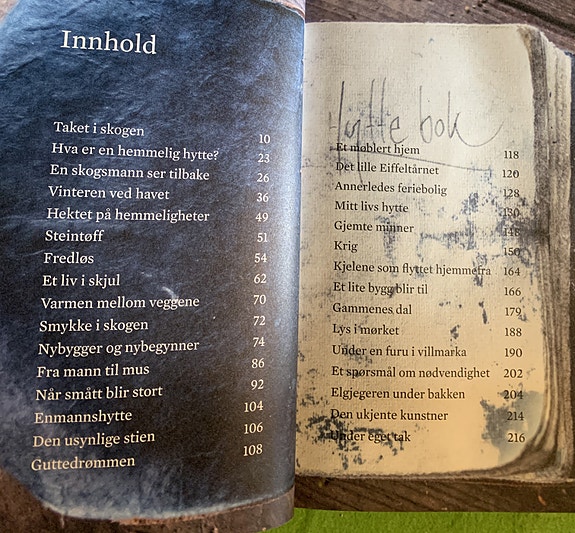 Innhold
Taket i skogen 10
Hva er en hemmelig hytte? 23
En skogsmann ser tilbake 26
Vinteren ved havet 36
Hektet på hemmeligheter 49
Steintøff 51
Fredløs 54
Et liv i skjul 62
Varmen mellom veggene 70
Smykke i skogen 72
Nybygger og nybegynner 74
Fra mann til mus 86
Når smått blir stort 92
Enmannshytte 104
Den usynlige stien 106
Guttedrømmen 108
Hytte bok
Et møblert hjem 118
Det lille Eiffeltårnet 120
Annerledes feriebolig 128
Mitt livs hytte 130
Gjemte minner 148
Krig 150
Kjelene som flyttet hjemmefra 164
Et lite bygg blir til 166
Gammenes dal 179
Lys i mørket 188
Under en furu i villmarka 190
Et spørsmål om nødvendighet 202
Elgjegeren under bakken 204
Den ukjente kunstner 214
Under eget tak 216